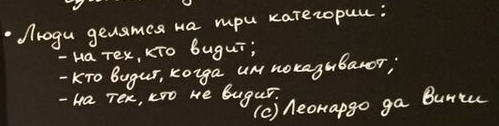 • Люди делятся на три категории:
- на тех, кто видит;
- кто видит, когда им показывают;
- на тех, кто не видит.
(с) Леонардо да Винчи